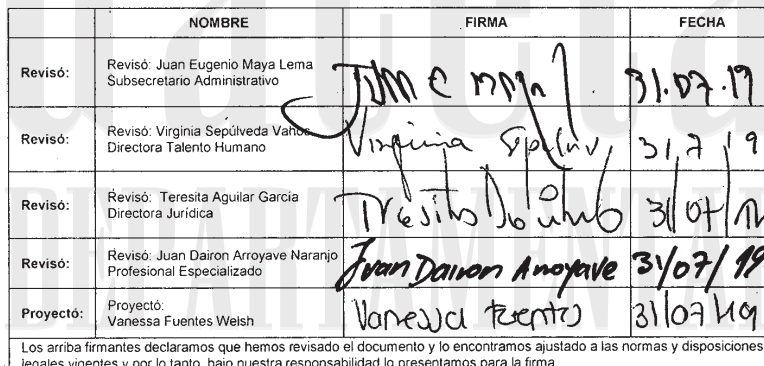 NOMBRE FIRMA FECHA
Revisó: Revisó: Juan Eugenio Maya Lema
Subsecretario Administrativo 31.07.19
Revisó: Revisó: Virginia Sepúlveda Vahos
Directora Talento Humano Virginia 31/7/19
Revisó: Revisó: Teresita Aguilar García
Directora Jurídica 31/07/
Revisó: Revisó: Juan Dairon Arroyave Naranjo
Profesional Especializado Juan Dairon Arroyave 31/07/19
Proyectó: Proyectó:
Vanessa Fuentes Welsh Vanessa Fuentes 31/07/19
Los arriba firmantes declaramos que hemos revisado el documento y lo encontramos ajustado a las normas y disposiciones
legales vigentes y por lo tanto, bajo nuestra responsabilidad lo presentamos para la firma.
DEPARTAMENTAL